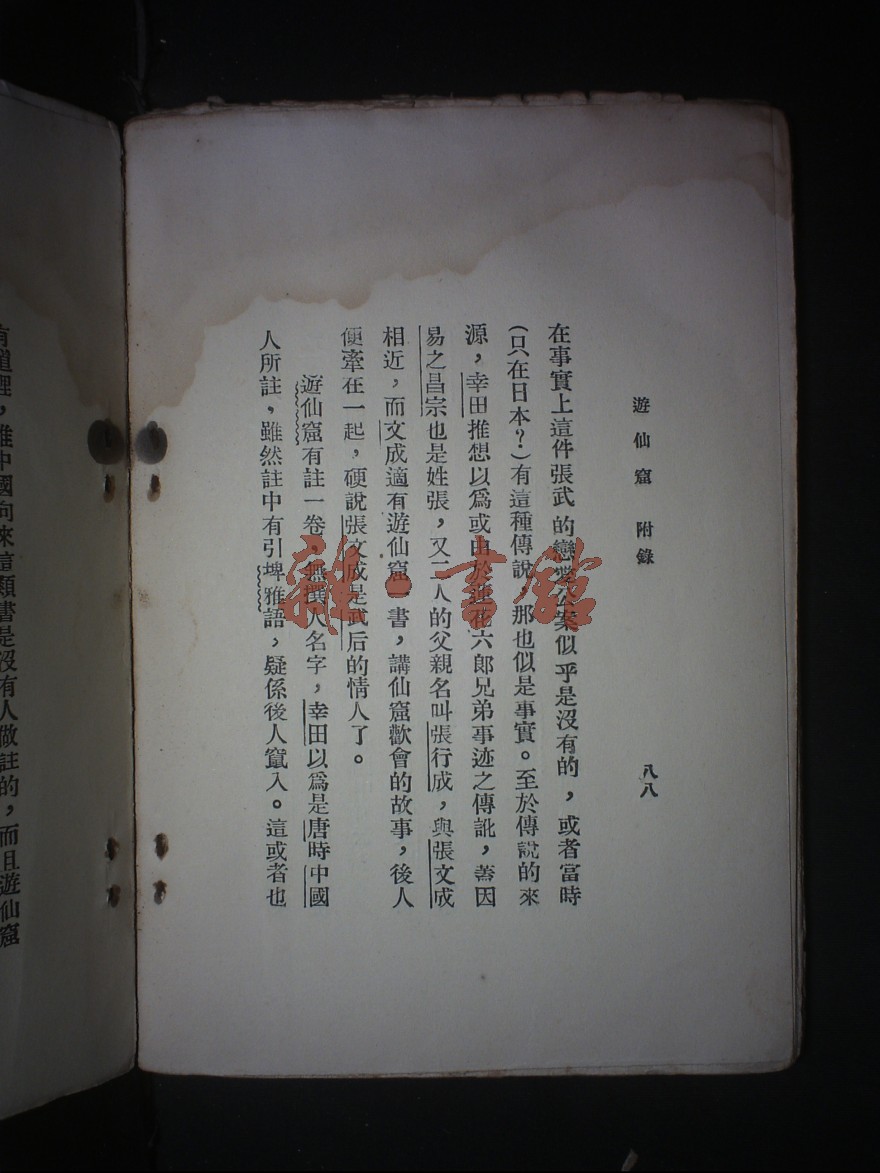 遊仙窟 附錄
八八
在事實上這件張武的戀愛公案似乎是沒有的，或者當時
(只在日本？)有這種傳說，那也似是事實。至於傳說的來
源，幸田推想以爲或由於蓮花六郎兄弟事迹之傳訛，蓋因
易之昌宗也是姓張，又二人的父親名叫張行成，與張文成
相近，而文成適有遊仙窟一書，講仙窟歡會的故事，後人
便牽在一起，硬說張文成是武后的情人了。
遊仙窟有註一卷，無撰人名字，幸田以爲是唐時中國
人所註，雖然註中有引埤雅語，疑係後人竄入。這或者也
有道理，雖中國向來這類書是沒有人做註的，而且遊仙窟
雜·書館